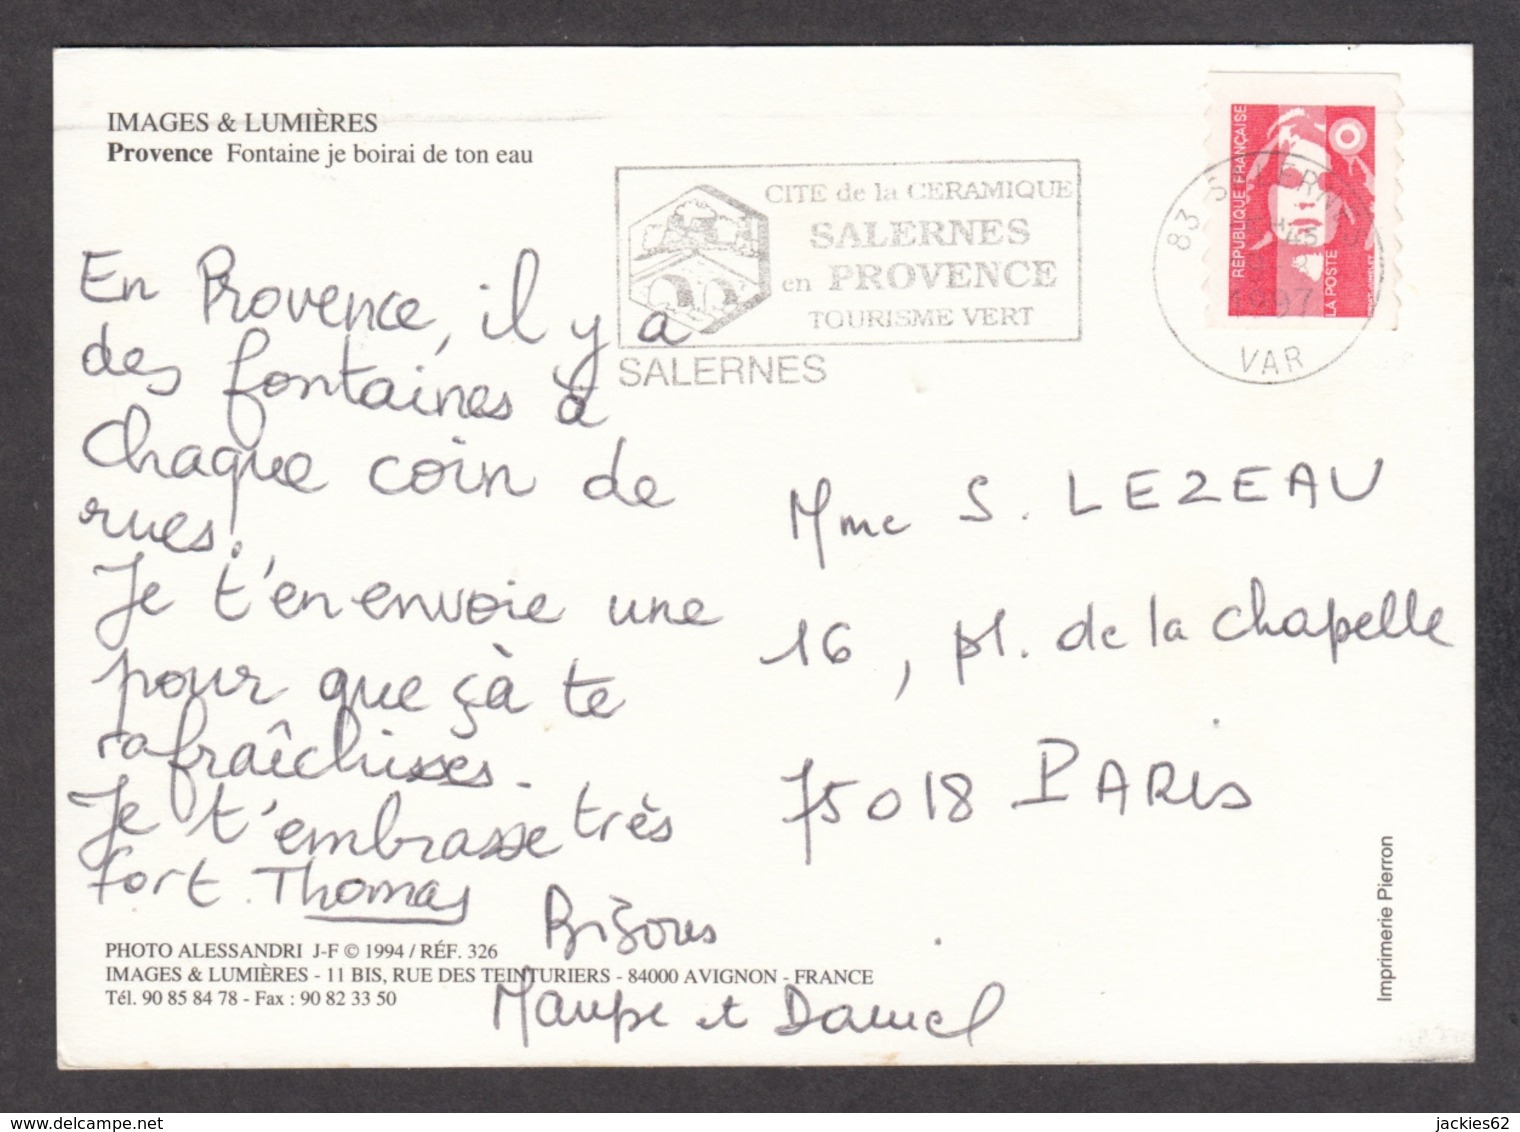 IMAGES & LUMIÈRES
Provence Fontaine je boirai de ton eau
CITE de la CERAMIQUE
SALERNES
en PROVENCE
TOURISME VERT
SALERNES
REPUBLIQUE FRANÇAISE
LA POSTE
83 SALERNES
1997
VAR
En Provence, il y a
des fontaines à
chaque coin de
rues.
Je t'en envoie une
pour que çà te
rafraîchisses.
Je t'embrasse très
fort. Thomas
Bizous
et Daniel
Mme S. LEZEAU
16, pl. de la chapelle
75018 PARIS
PHOTO ALESSANDRI J-F © 1994 / RÉF. 326
IMAGES & LUMIÈRES - 11 BIS, RUE DES TEINTURIERS - 84000 AVIGNON - FRANCE
Tél. 90 85 84 78 - Fax : 90 82 33 50
Imprimerie Pierron
jackies62